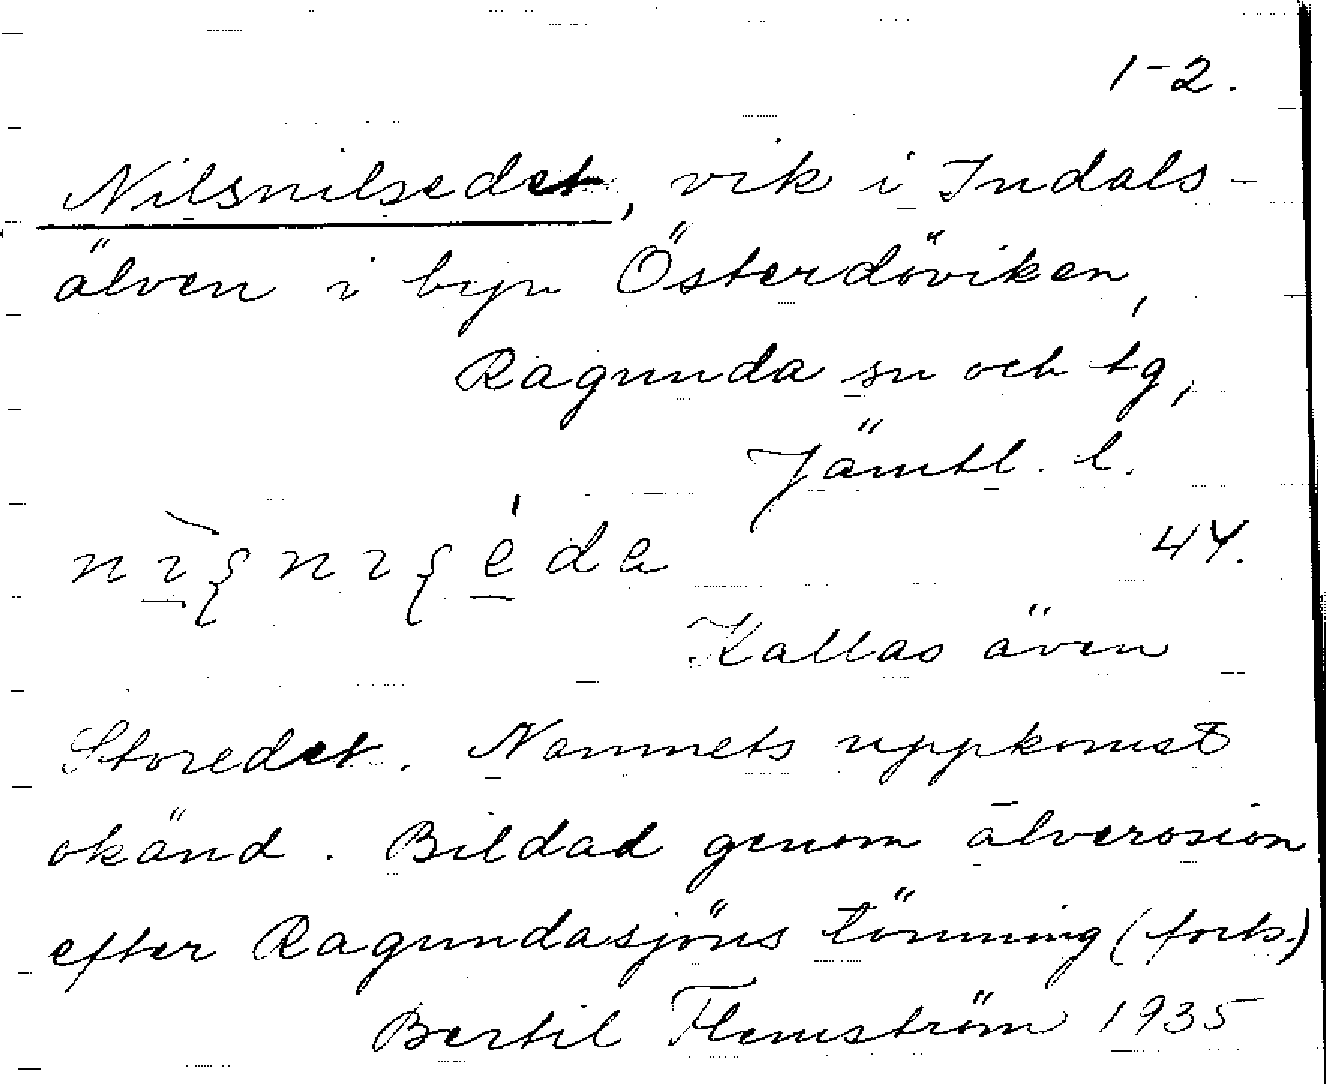 1-2.
Nilsnilsedet, vik i Indals-
älven i byn Österdöviken,
Ragunda sn och tg,
Jämtl. l.
44.
Kallas även
Storedet. Namnets uppkomst
okänd. Bildad genom älverosion
efter Ragundasjöns tömning (forts.)
Bertil Flemström 1935